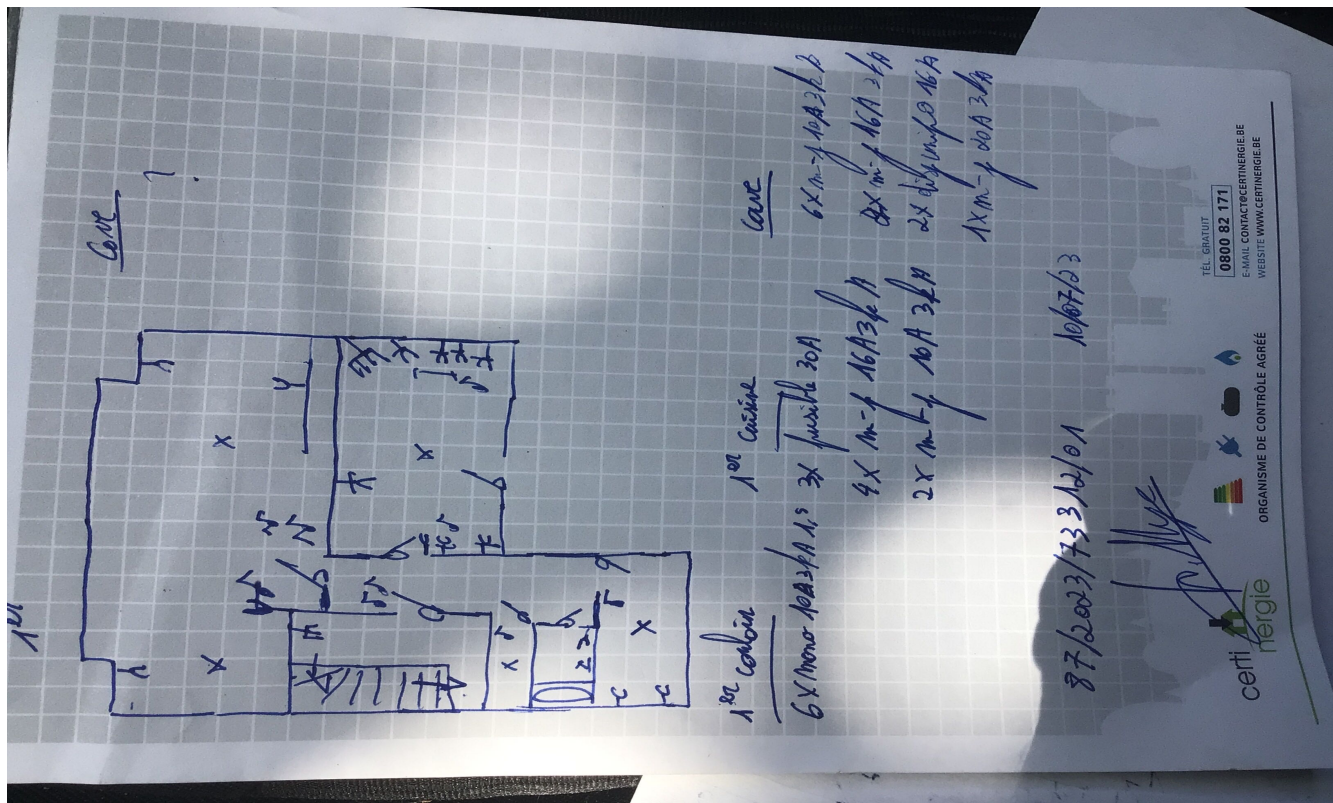 1er
Cave
?
1er couloir
6x mono 10A 3kA 1,5
1er cuisine
3x fusible 20A
4x m-p 16A 3kA
2x m-p 10A 3kA
Cave
6x m-p 10A 3kA
8x m-p 16A 3kA
2x 16A
1x m-p 20A 3kA
87/2023/73312/01 10/07/23
certinergie
ORGANISME DE CONTRÔLE AGRÉÉ
TÉL. GRATUIT
0800 82 171
E-MAIL CONTACT@CERTINERGIE.BE
WEBSITE WWW.CERTINERGIE.BE